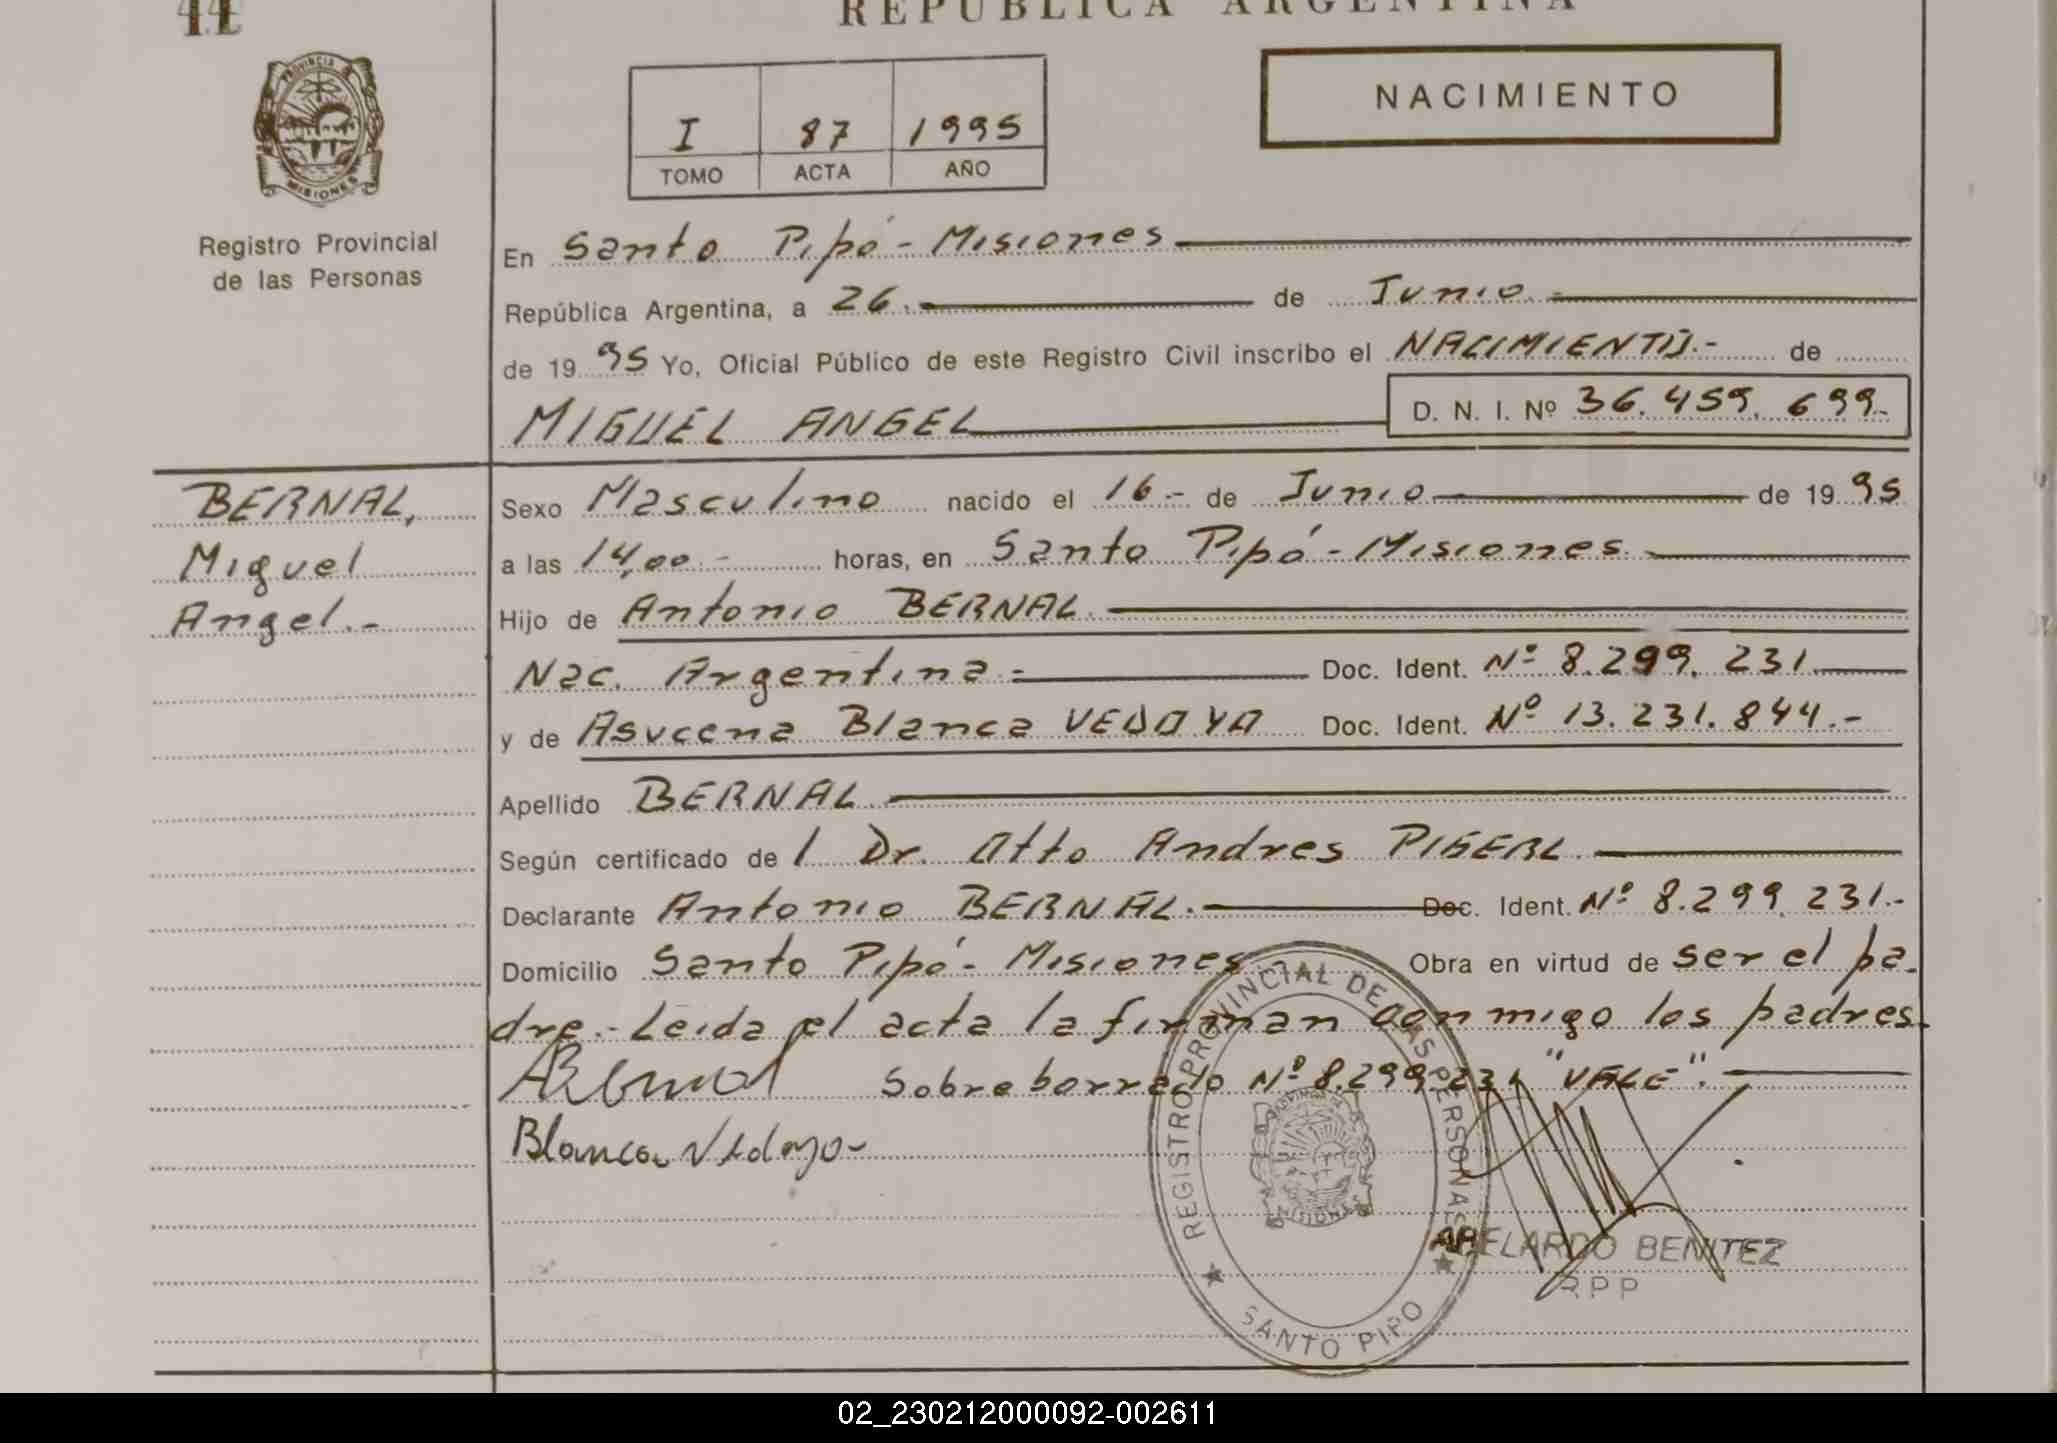 44
REPUBLICA ARGENTINA
PROVINCIA DE
MISIONES
Registro Provincial
de las Personas
I 87 1995
TOMO ACTA AÑO
NACIMIENTO
En Santo Pipó - Misiones
República Argentina, a 26.- de Junio.-
de 19 95 Yo, Oficial Público de este Registro Civil inscribo el NACIMIENTO.- de
MIGUEL ANGEL D. N. I. Nº 36.459.699.-
BERNAL,
Miguel
Angel.-
Sexo Masculino nacido el 16.- de Junio de 19 95
a las 14,00.- horas, en Santo Pipó - Misiones.-
Hijo de Antonio BERNAL.
Nac. Argentina.- Doc. Ident. Nº 8.299.231.
y de Asucena Blanca VEDOYA Doc. Ident. Nº 13.231.844.-
Apellido BERNAL.
Según certificado de l Dr. Otto Andres PIGERL.
Declarante Antonio BERNAL. Doc. Ident. Nº 8.299.231.-
Domicilio Santo Pipó - Misiones Obra en virtud de ser el pa-
dre.- Leida el acta la firman conmigo los padres.
ABernal Sobre borrado Nº 8.299.231 "VALE".
Blanca Vedoya
REGISTRO PROVINCIAL DE LAS PERSONAS
MISIONES
SANTO PIPO
ABELARDO BENITEZ
R P P
02_230212000092-002611